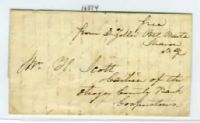 Free
from D. Zoller Post Master
Mr. H. Scott
Cashier of the
Otsego County Bank
Cooperstown